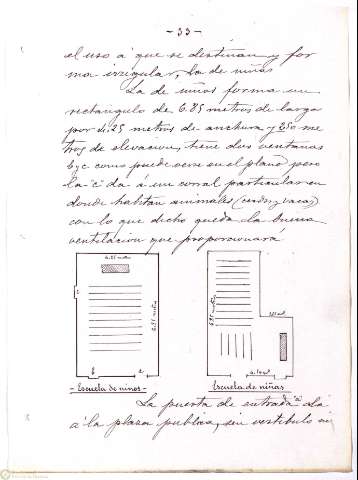 - 33 -
el uso á que se destinan y for
ma irregular, la de niñas
La de niños forma un
rectangulo de 6.85 metros de largo
por 4.25 metros de anchura y 2,50 me
tros de elevacion, tiene dos ventanas
b y c como puede verse en el plano pero
la "c" da á un corral particular en
donde habitan animales (cerdos y vacas)
con lo que dicho queda la buena
ventilación que proporcionará
4.25 metros
6.85 metros
c
b
a
- Escuela de niños -
6.85 metros
Escuela de niñas
La puerta de entrada "a" dá
á la plaza publica, sin vestibulo ni